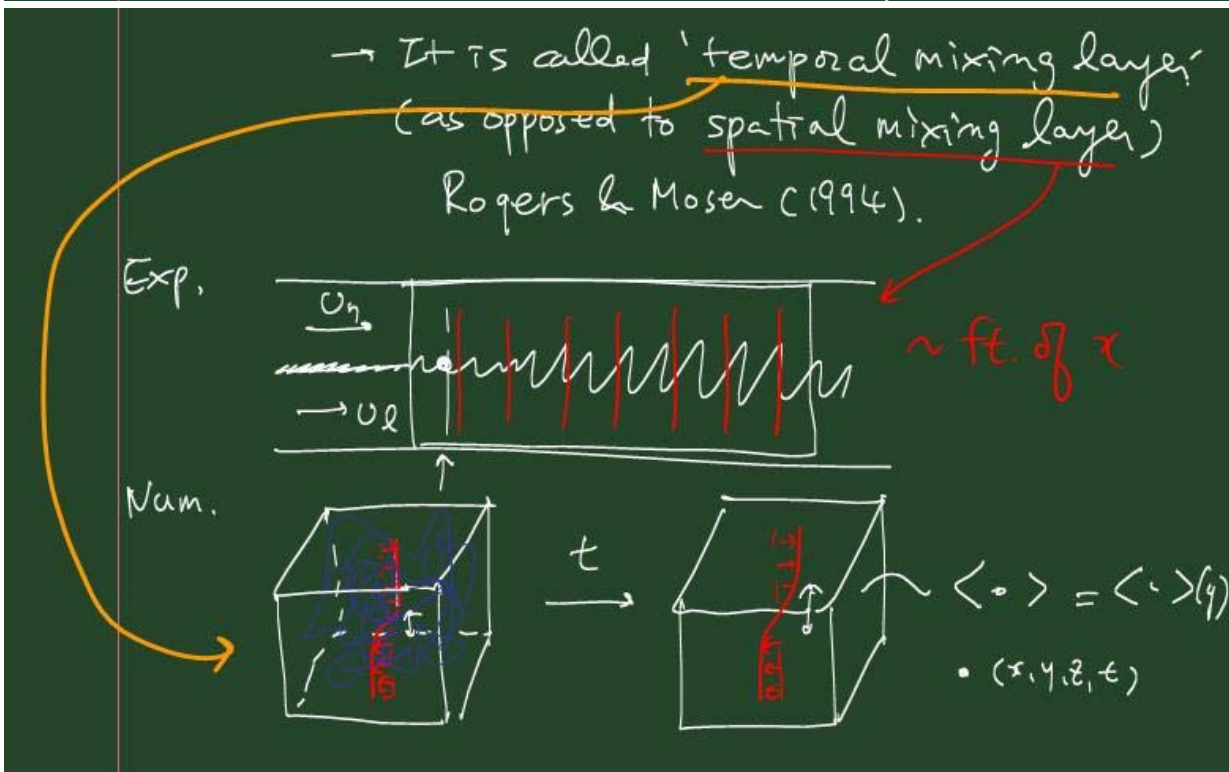 → It is called 'temporal mixing layer'
(as opposed to spatial mixing layer)
Rogers & Moser (1994).
Exp.
U_h
→ U_l
~ ft. of x
Num.
t
< • > = < · >(y)
• (x, y, z, t)